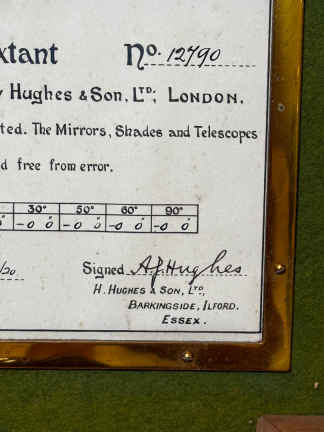 xtant No. 12790
y Hughes & Son, LTD; LONDON.
ted. The Mirrors, Shades and Telescopes
d free from error.
30° 50° 60° 90°
-0 0 -0 0 -0 0 -0 0
/20 Signed A.J. Hughes
H. HUGHES & SON, LTD,
BARKINGSIDE, ILFORD.
ESSEX.